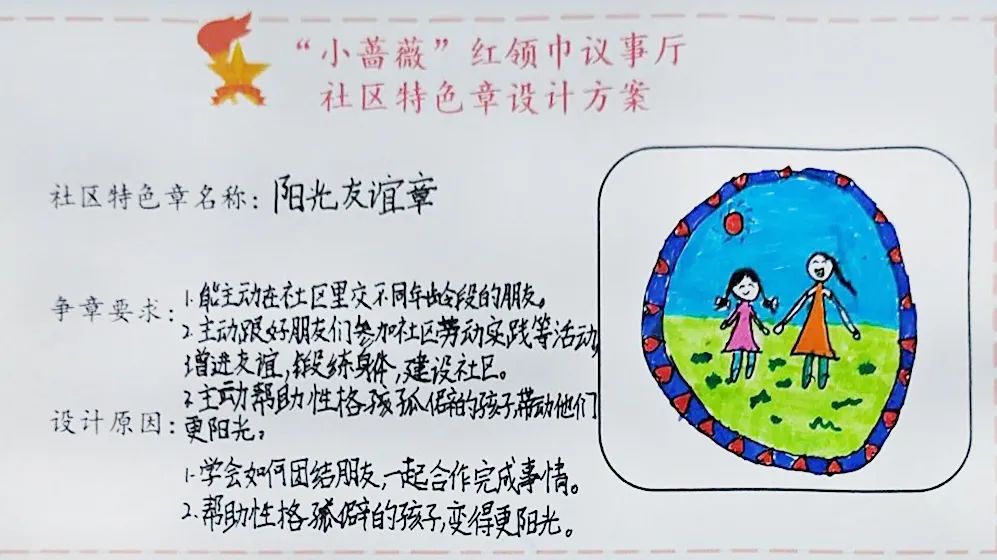 “小蔷薇”红领巾议事厅
社区特色章设计方案
社区特色章名称：阳光友谊章
争章要求：1.能主动在社区里交不同年龄段的朋友。
2.主动跟好朋友们参加社区劳动实践等活动,
增进友谊,锻练身体,建设社区。
3.主动帮助性格孤僻的孩子,带动他们
设计原因：更阳光。
1.学会如何团结朋友,一起合作完成事情。
2.帮助性格孤僻的孩子,变得更阳光。